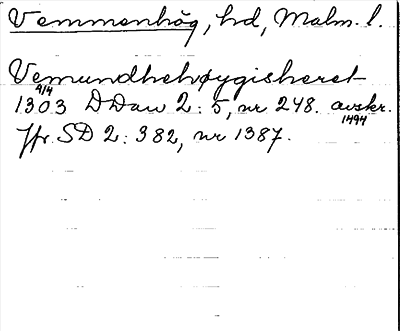 Vemmenhög, hd, Malm. l.
Vemundhehøygisheret
1303 9/4 DDan 2:5, nr 248. avskr. 1494
Jfr SD 2:382, nr 1387.